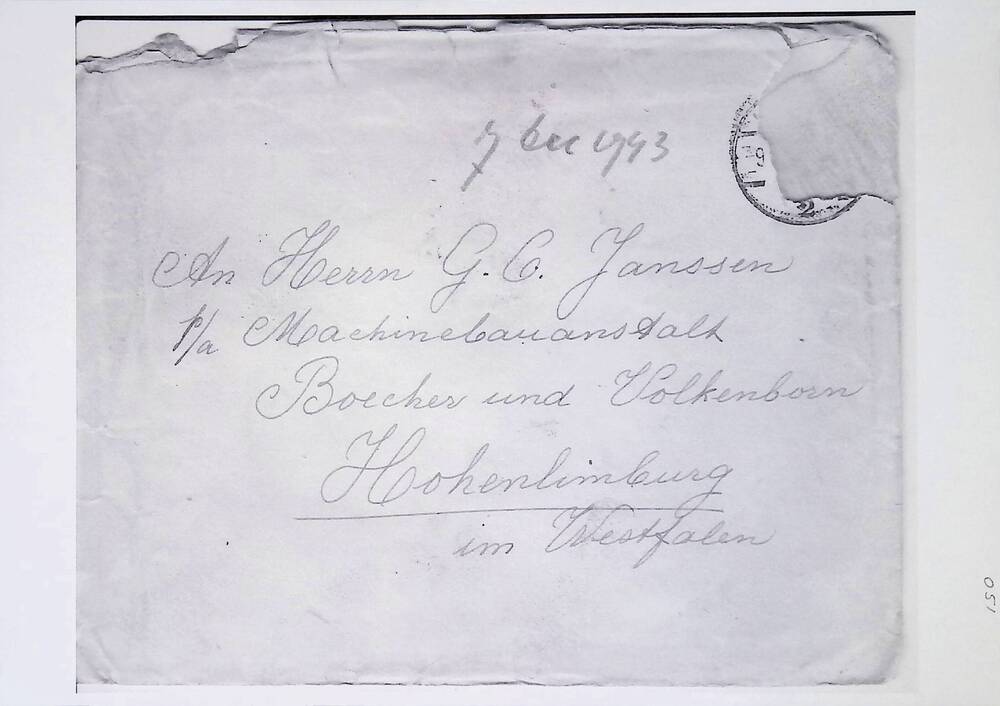 7 dec 1943
9
2
An Herrn G. C. Janssen
p/a Machinebauanstalt
Boecker und Volkenborn
Hohenlimburg
im Westfalen
150